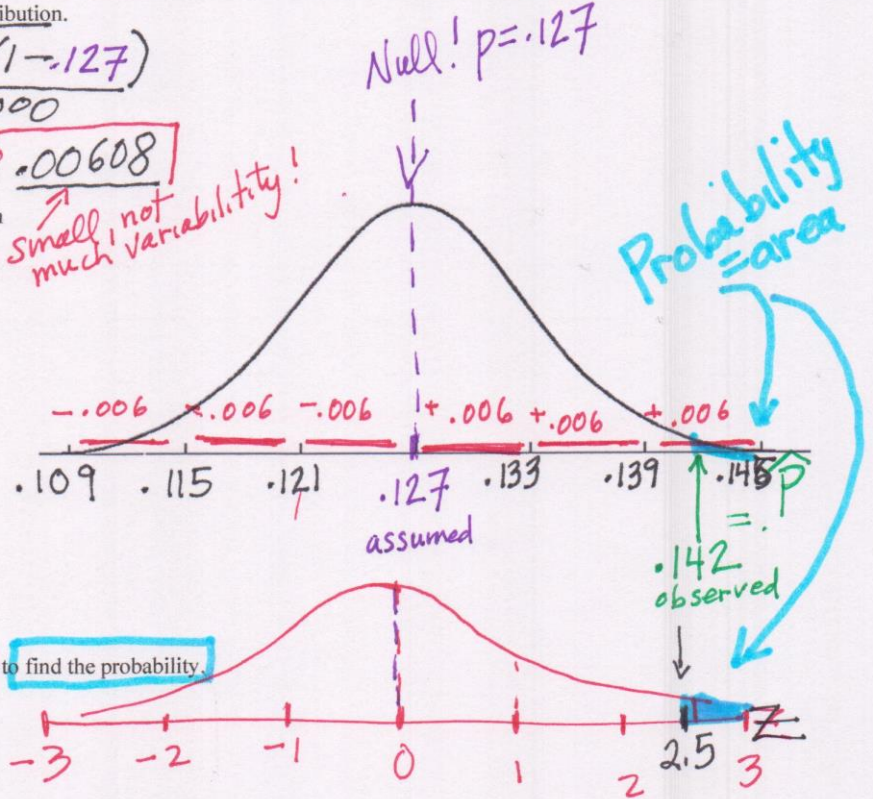 ibution.
(1-.127)
000
.00608
small, not
much variabilitity!
Null! p=.127
Probability
=area
-.006 -.006 -.006 +.006 +.006 +.006
.109 .115 .121 .127 .133 .139 .145 p̂
assumed
=.
.142
observed
to find the probability.
-3 -2 -1 0 1 2 2.5 3 Z